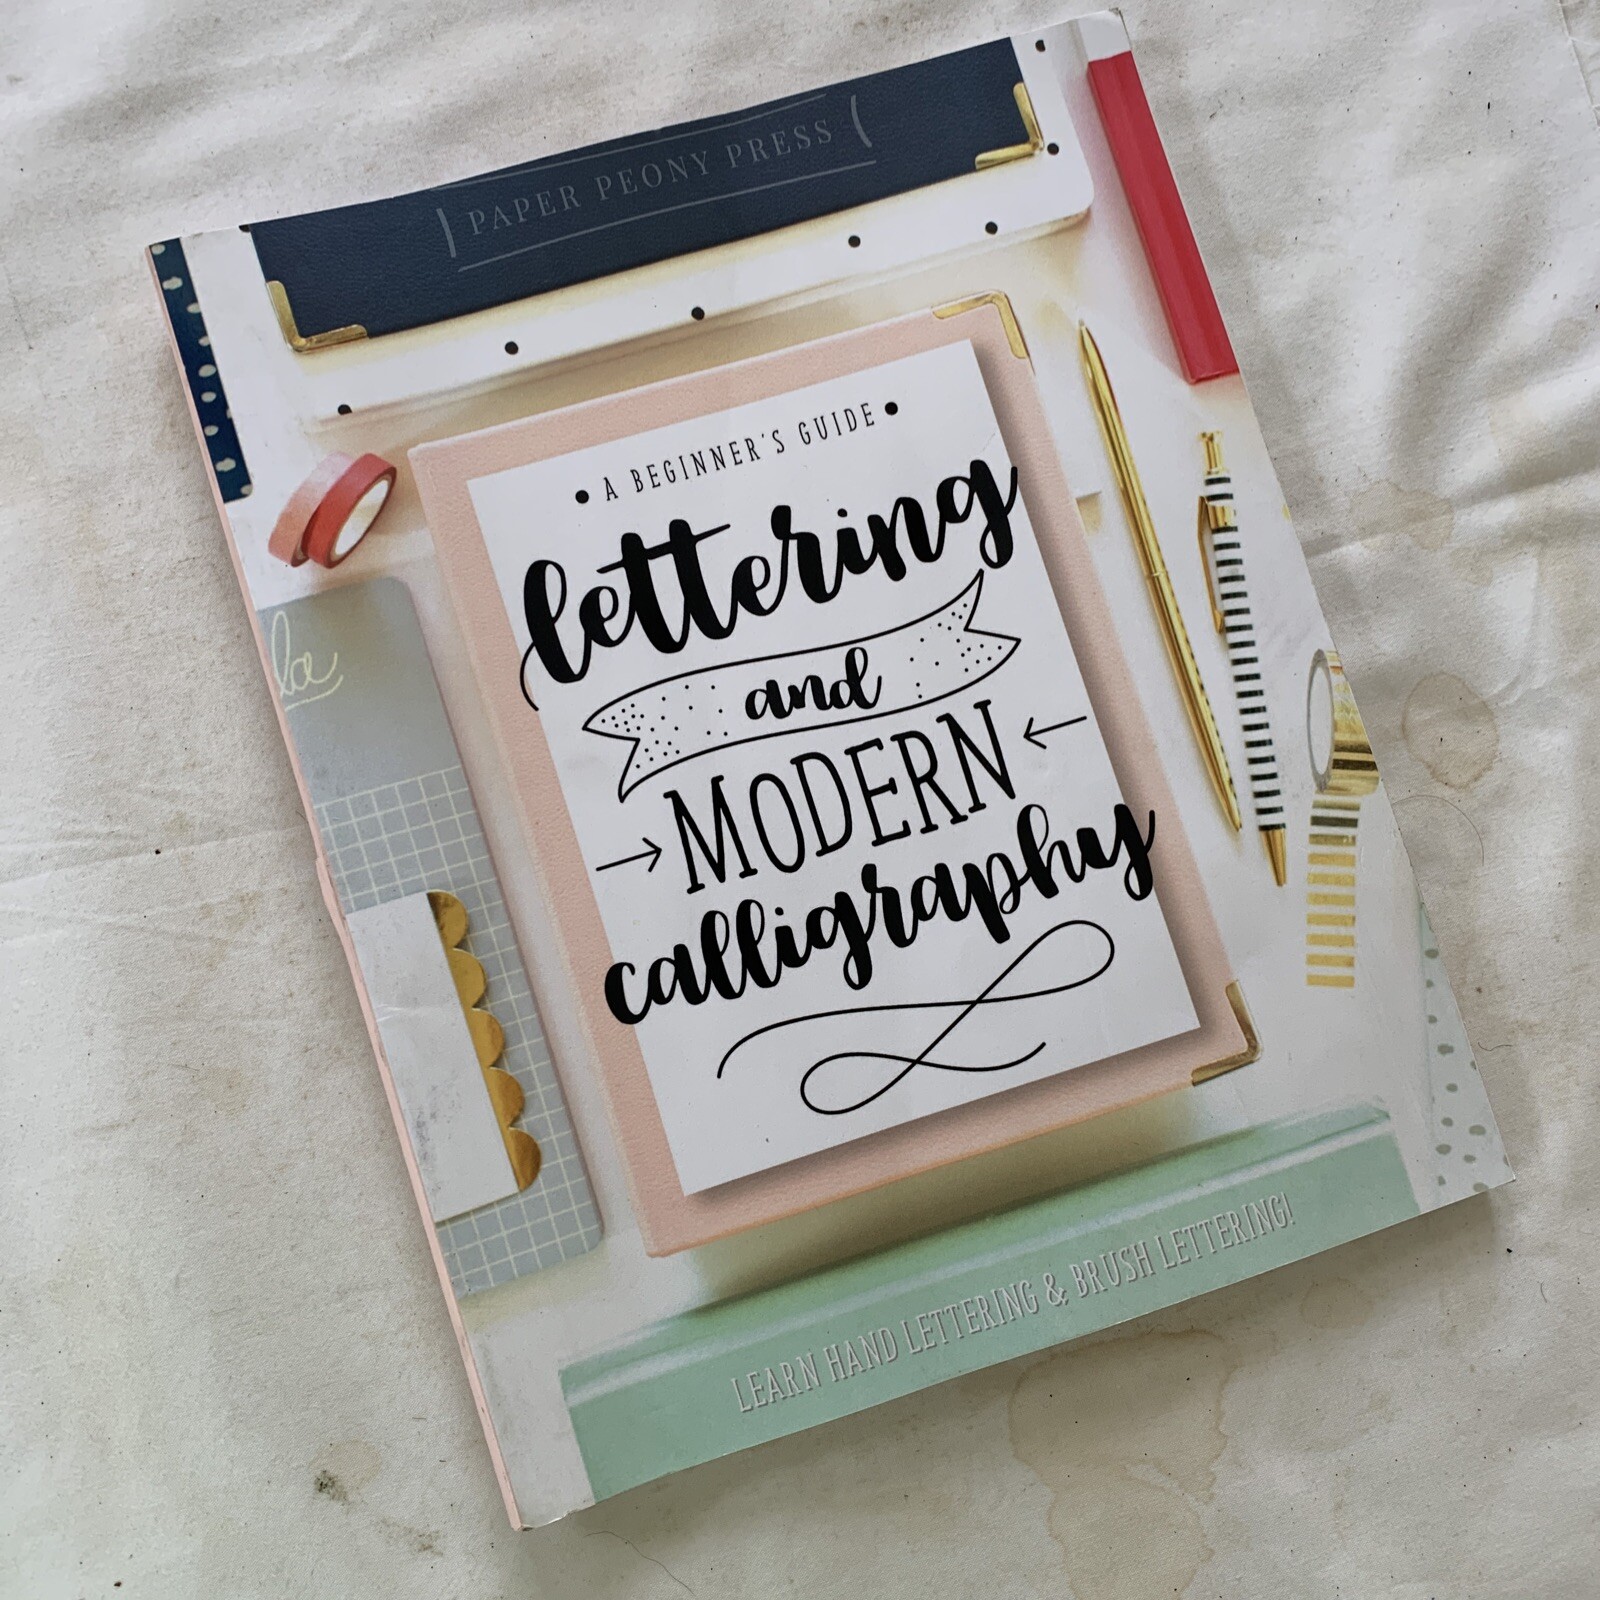 PAPER PEONY PRESS
• A BEGINNER'S GUIDE •
lettering
and
MODERN
calligraphy
LEARN HAND LETTERING & BRUSH LETTERING!